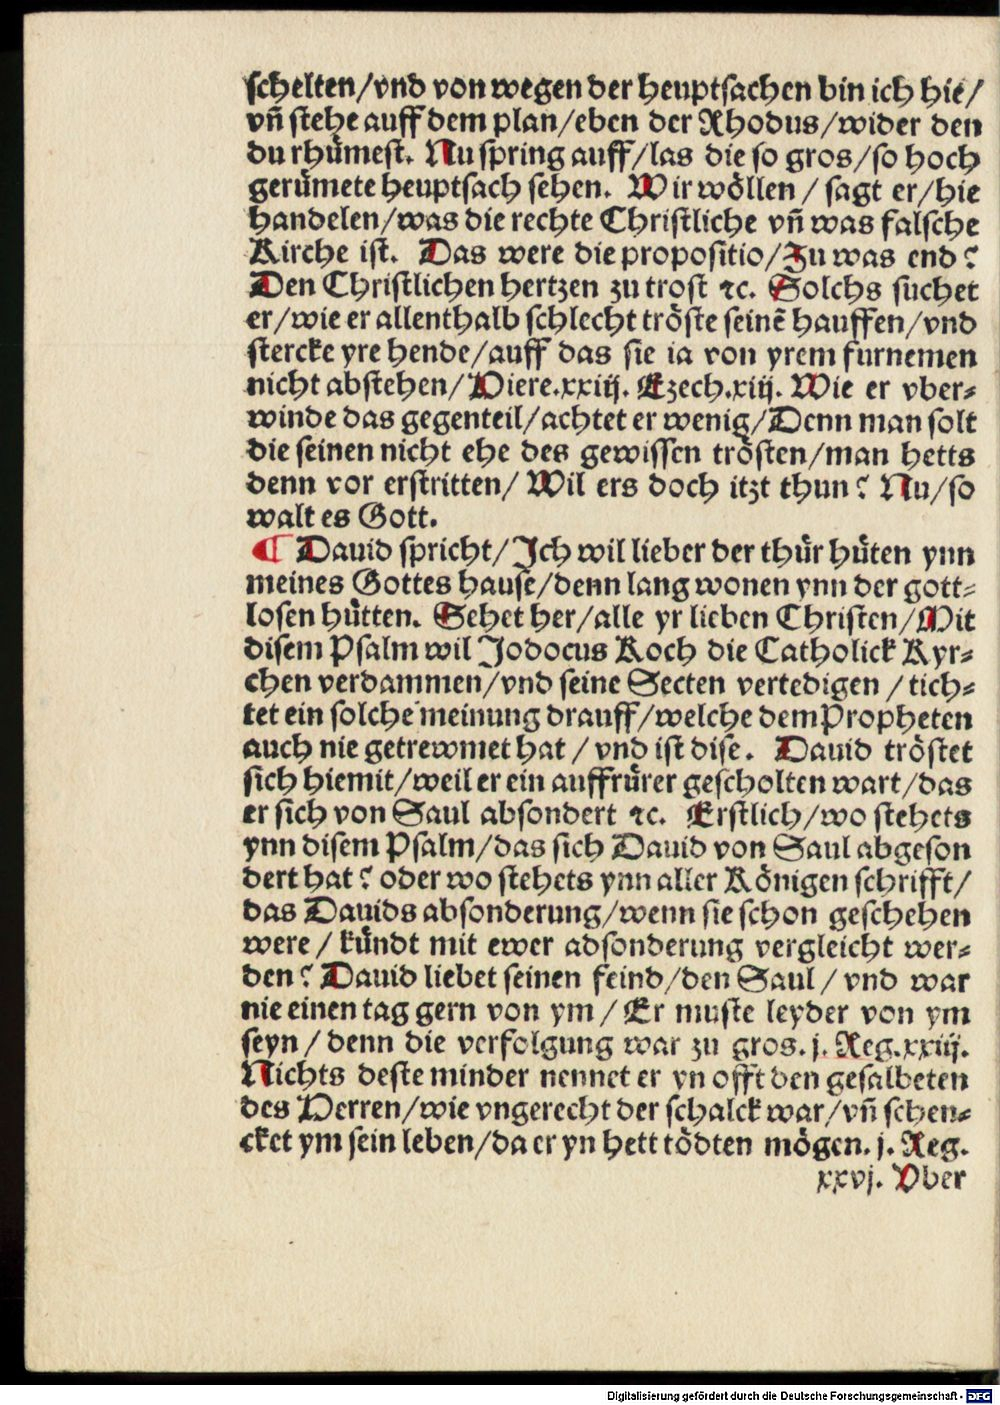 schelten/vnd von wegen der heuptsachen bin ich hie/
vñ stehe auff dem plan/eben der Rhodus/wider den
du rhůmest. Nu spring auff/las die so gros/so hoch
gerůmete heuptsach sehen. Wir wöllen / sagt er/hie
handelen/was die rechte Christliche vñ was falsche
Kirche ist. Das were die propositio/Zu was end?
Den Christlichen hertzen zu trost ⁊c. Solchs suchet
er/wie er allenthalb schlecht tröste seinẽ hauffen/vnd
stercke yre hende/auff das sie ia von yrem furnemen
nicht abstehen/Hiere.xxiij. Ezech.xiij. Wie er vber⸗
winde das gegenteil/achtet er wenig/Denn man solt
die seinen nicht ehe des gewissen trösten/man hetts
denn vor erstritten/ Wil ers doch itzt thun? Nu/so
walt es Gott.
¶ Dauid spricht/Ich wil lieber der thůr hůten ynn
meines Gottes hause/denn lang wonen ynn der gott⸗
losen hůtten. Sehet her/alle yr lieben Christen/Mit
disem Psalm wil Jodocus Koch die Catholick Kyr⸗
chen verdammen/vnd seine Secten vertedigen / tich⸗
tet ein solche meinung drauff/welche dem Propheten
auch nie getrewmet hat / vnd ist dise. Dauid tröstet
sich hiemit/weil er ein auffrůrer gescholten wart/das
er sich von Saul absondert ⁊c. Erstlich/wo stehets
ynn disem Psalm/das sich Dauid von Saul abgeson
dert hat? oder wo stehets ynn aller Königen schrifft/
das Dauids absonderung/wenn sie schon geschehen
were / kůndt mit ewer adsonderung vergleicht wer⸗
den? Dauid liebet seinen feind/den Saul / vnd war
nie einen tag gern von ym / Er muste leyder von ym
seyn / denn die verfolgung war zu gros. j. Reg.xxiij.
Nichts deste minder nennet er yn offt den gesalbeten
des Herren/wie vngerecht der schalck war/vñ schen⸗
cket ym sein leben/da er yn hett tödten mögen. j. Reg.
xxvj. Vber
Digitalisierung gefördert durch die Deutsche Forschungsgemeinschaft - DFG